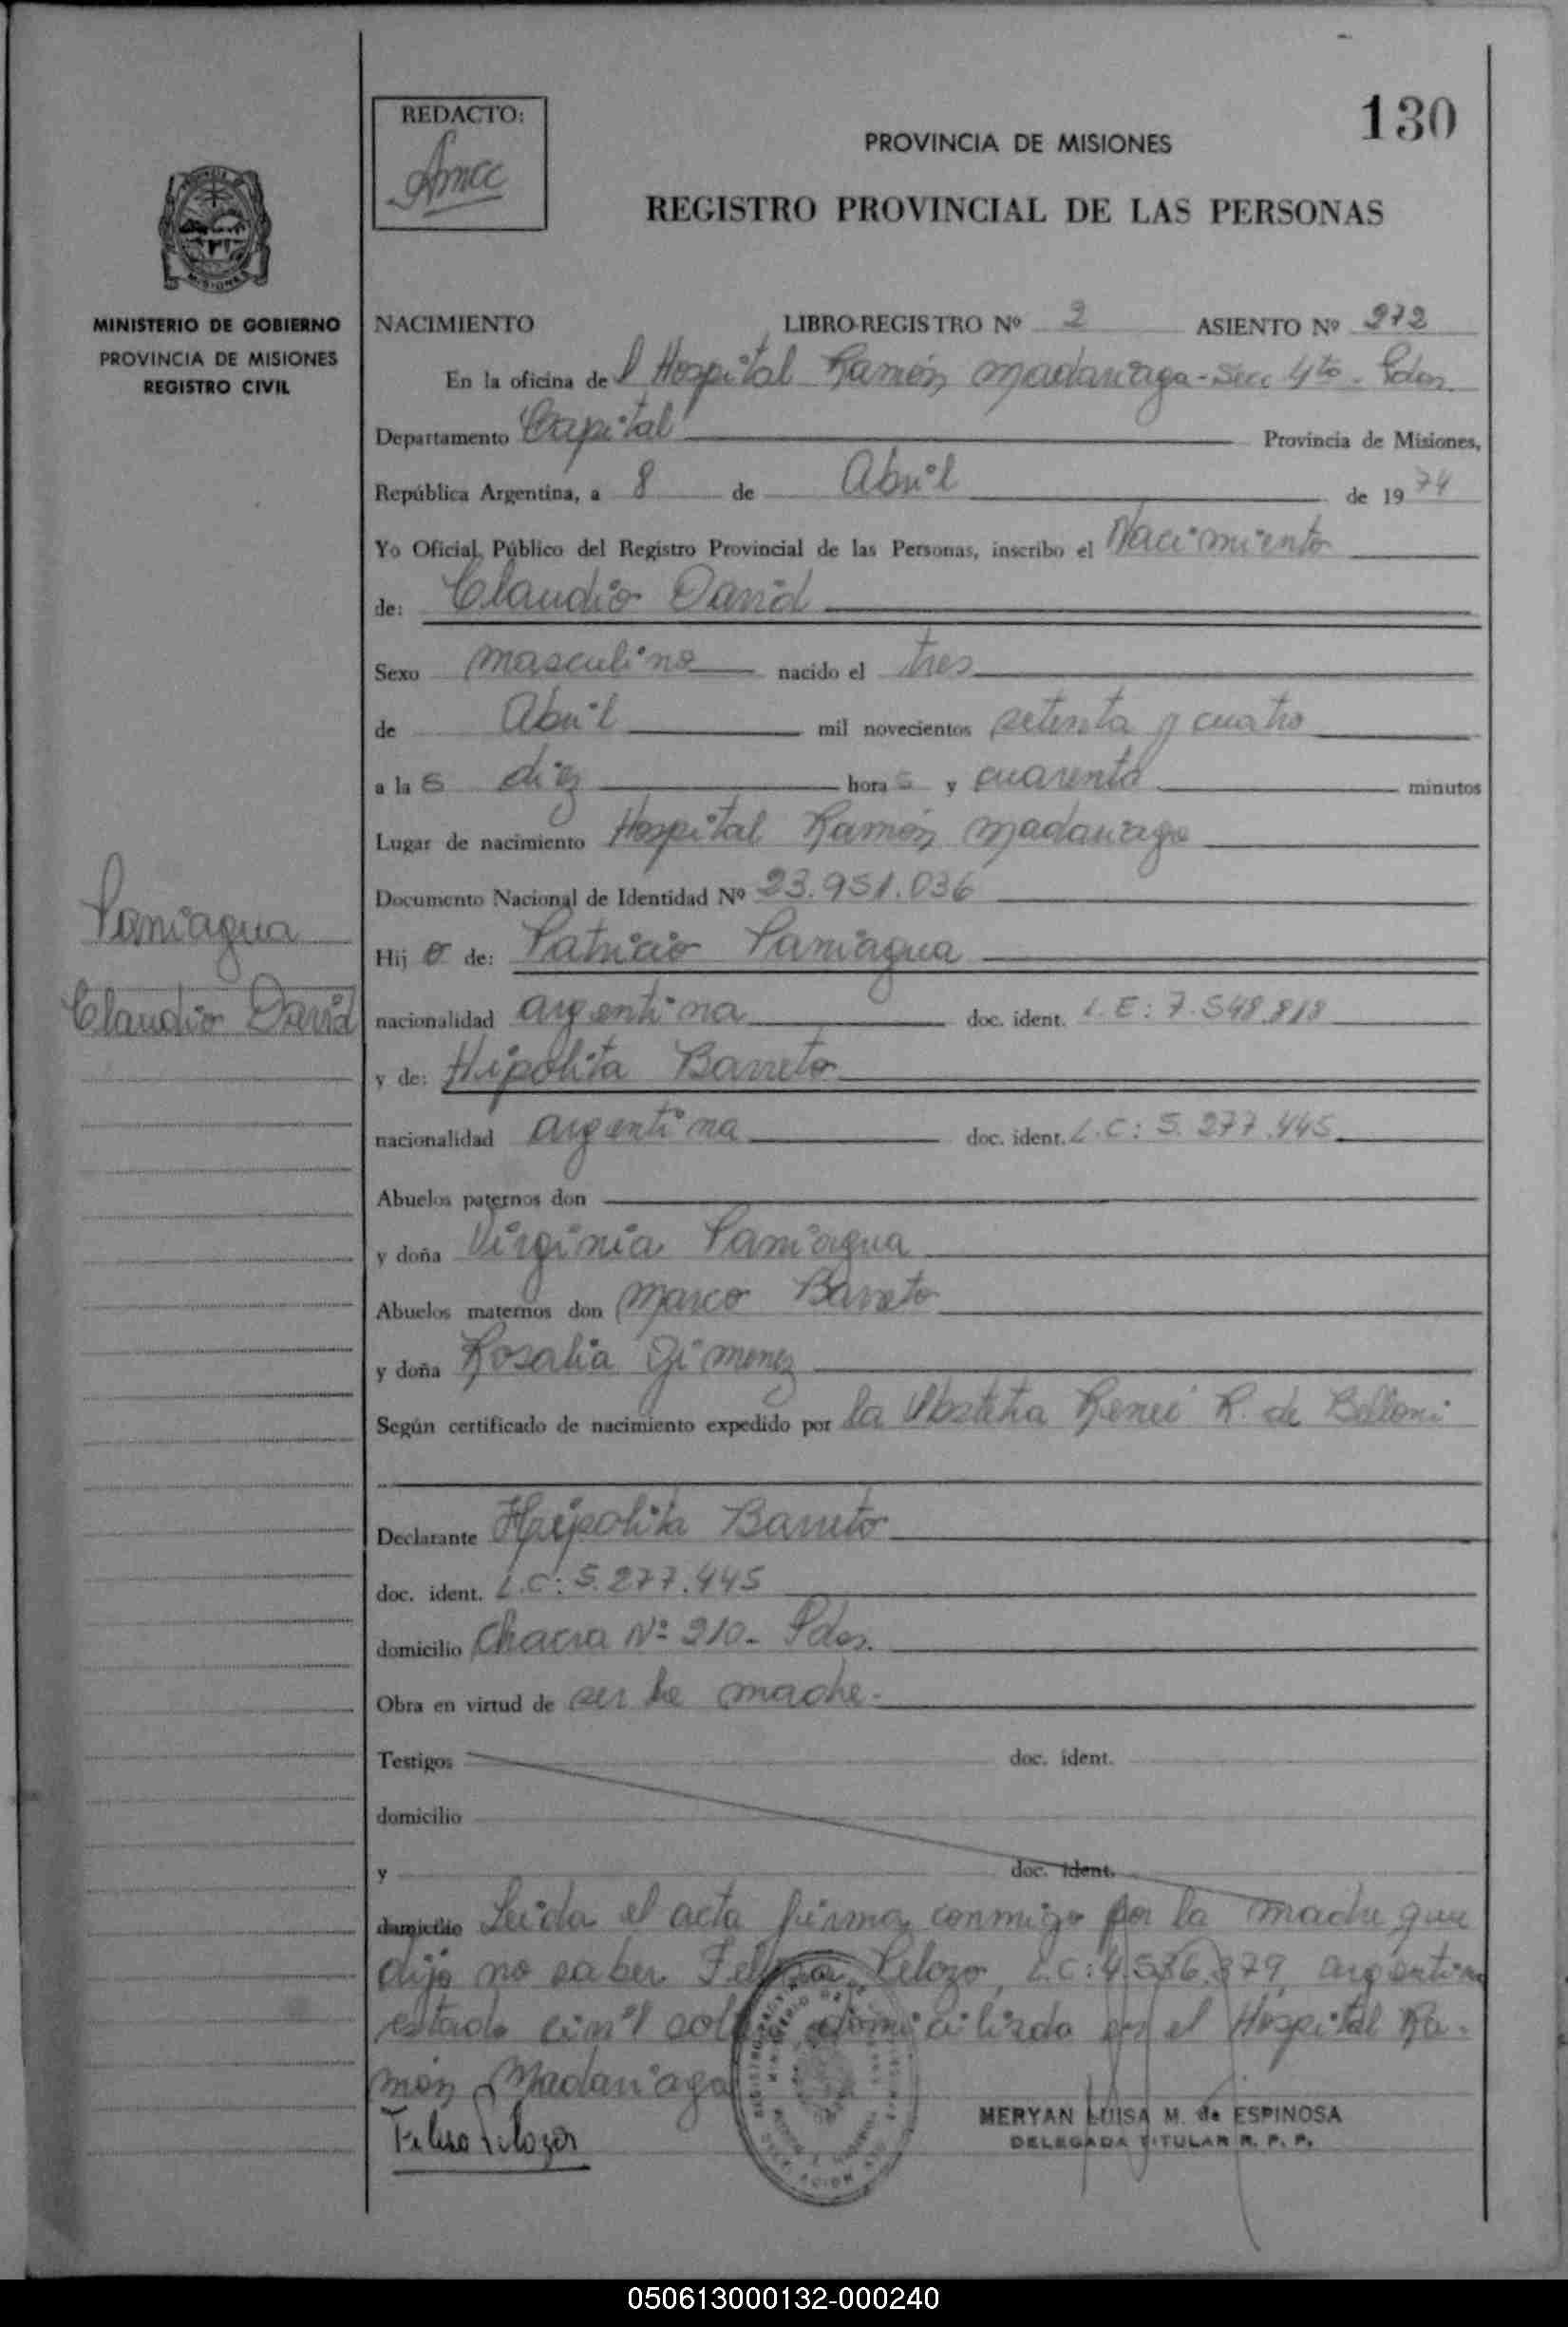 130
REDACTO:
PROVINCIA DE MISIONES
REGISTRO PROVINCIAL DE LAS PERSONAS
MISIONES
MINISTERIO DE GOBIERNO
PROVINCIA DE MISIONES
REGISTRO CIVIL
NACIMIENTO LIBRO-REGISTRO Nº 2 ASIENTO Nº 272
En la oficina del Hospital Ramón Madariaga - Secc 4ta - Pdas.
Departamento Capital Provincia de Misiones,
República Argentina, a 8 de Abril de 1974
Yo Oficial Público del Registro Provincial de las Personas, inscribo el Nacimiento
de: Claudio David
Sexo masculino nacido el tres
de Abril mil novecientos setenta y cuatro
a las diez horas y cuarenta minutos
Lugar de nacimiento Hospital Ramón Madariaga
Documento Nacional de Identidad Nº 23.951.036
Paniagua
Claudio David
Hijo de: Patricio Paniagua
nacionalidad argentina doc. ident. L.E: 7.548.818
y de: Hipólita Barreto
nacionalidad argentina doc. ident. L.C: 5.277.445
Abuelos paternos don
y doña Virginia Paniagua
Abuelos maternos don Marco Barreto
y doña Rosalia Gimenez
Según certificado de nacimiento expedido por la Obstetra Reneé R. de Belloni
Declarante Hipolita Barreto
doc. ident. L.C: 5.277.445
domicilio Chacra Nº 210 - Pdas.
Obra en virtud de ser la madre.
Testigos doc. ident.
domicilio
y doc. ident.
domicilio Leida el acta firma conmigo por la madre que
dijo no saber Pelozo, L.C: 4.536.379, argentina
estado civil domiciliada en el Hospital Ra-
món Madariaga
MERYAN LUISA M. de ESPINOSA
DELEGADA TITULAR R. P. P.
050613000132-000240